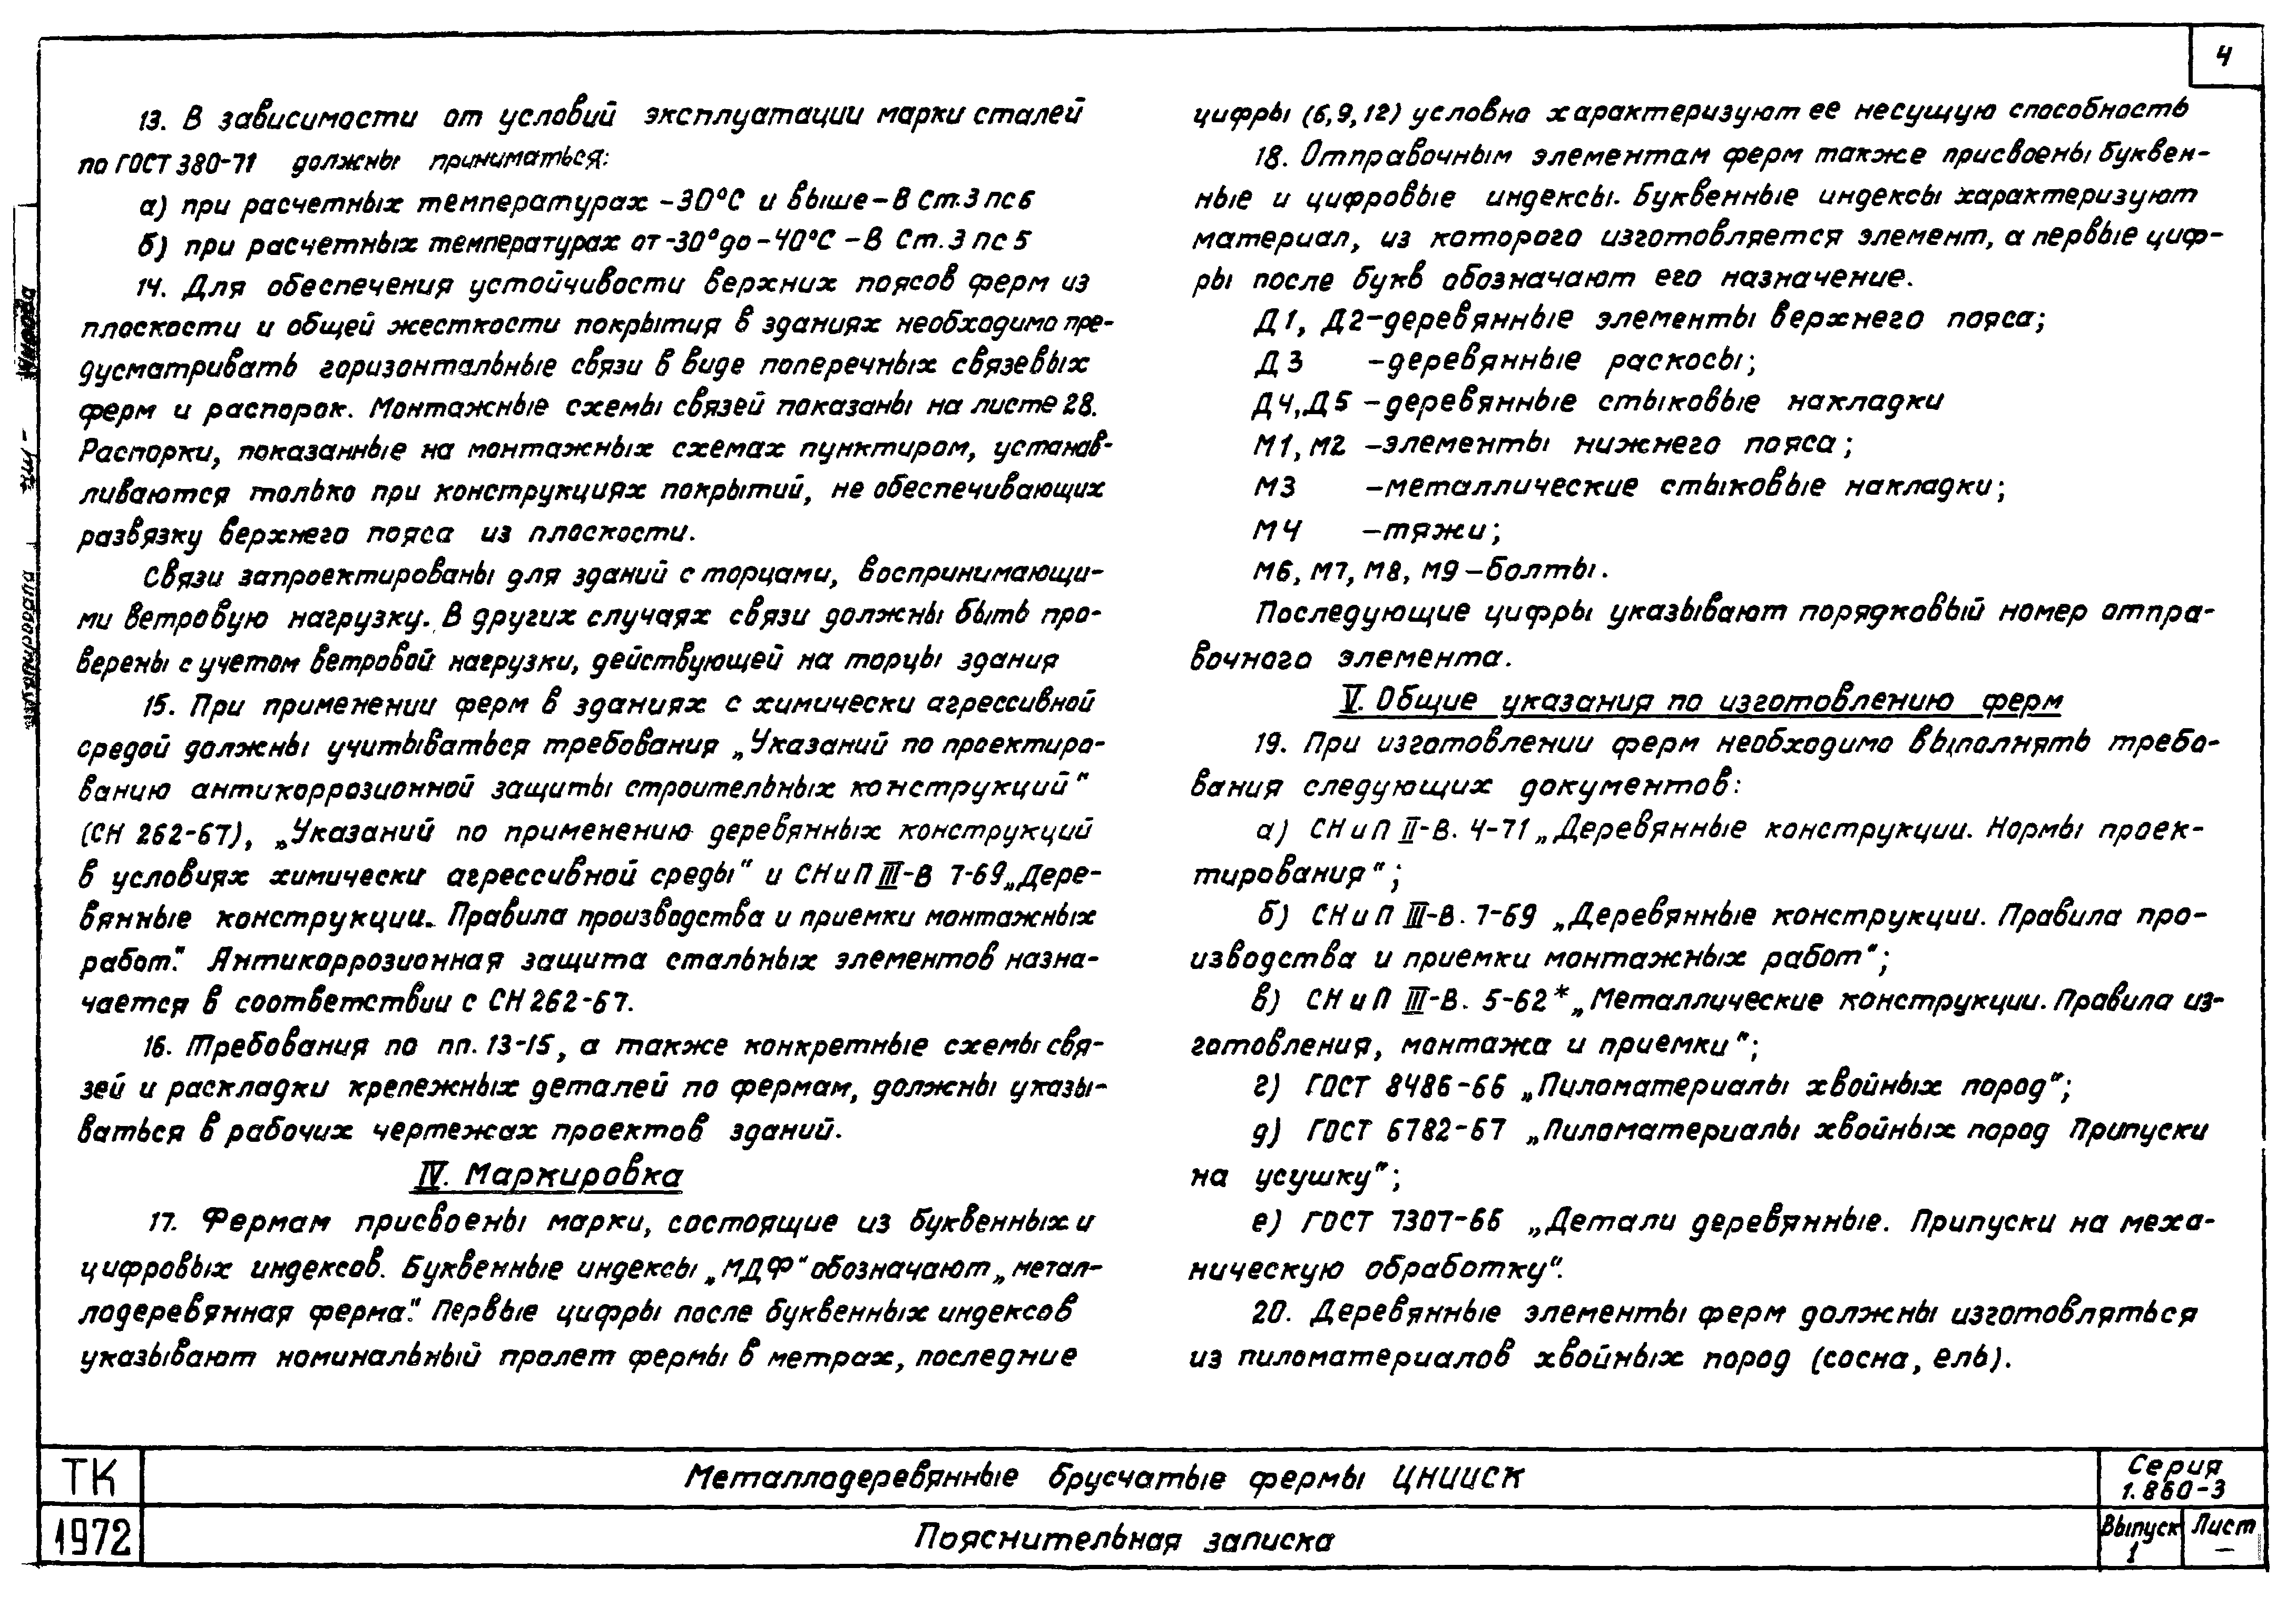 4
13. В зависимости от условий эксплуатации марки сталей
по ГОСТ 380-71 должны приниматься:
а) при расчетных температурах -30°С и выше - В Ст.3 пс6
б) при расчетных температурах от -30° до -40°С - В Ст.3 пс 5
14. Для обеспечения устойчивости верхних поясов ферм из
плоскости и общей жесткости покрытия в зданиях необходимо пре-
дусматривать горизонтальные связи в виде поперечных связевых
ферм и распорок. Монтажные схемы связей показаны на листе 28.
Распорки, показанные на монтажных схемах пунктиром, устанав-
ливаются только при конструкциях покрытий, не обеспечивающих
развязку верхнего пояса из плоскости.
Связи запроектированы для зданий с торцами, воспринимающи-
ми ветровую нагрузку. В других случаях связи должны быть про-
верены с учетом ветровой нагрузки, действующей на торцы здания
15. При применении ферм в зданиях с химически агрессивной
средой должны учитываться требования „Указаний по проектиро-
ванию антикоррозионной защиты строительных конструкций“
(СН 262-67), „Указаний по применению деревянных конструкций
в условиях химически агрессивной среды“ и СНиП III-В 7-69 „Дере-
вянные конструкции. Правила производства и приемки монтажных
работ“. Антикоррозионная защита стальных элементов назна-
чается в соответствии с СН 262-67.
16. Требования по пп. 13-15, а также конкретные схемы свя-
зей и раскладки крепежных деталей по фермам, должны указы-
ваться в рабочих чертежах проектов зданий.
IV. Маркировка
17. Фермам присвоены марки, состоящие из буквенных и
цифровых индексов. Буквенные индексы „МДФ“ обозначают „метал-
лодеревянная ферма“. Первые цифры после буквенных индексов
указывают номинальный пролет фермы в метрах, последние
цифры (6, 9, 12) условно характеризуют ее несущую способность
18. Отправочным элементам ферм также присвоены буквен-
ные и цифровые индексы. Буквенные индексы характеризуют
материал, из которого изготовляется элемент, а первые циф-
ры после букв обозначают его назначение.
Д1, Д2 - деревянные элементы верхнего пояса;
Д3 - деревянные раскосы;
Д4, Д5 - деревянные стыковые накладки
М1, М2 - элементы нижнего пояса;
М3 - металлические стыковые накладки;
М4 - тяжи;
М6, М7, М8, М9 - болты.
Последующие цифры указывают порядковый номер отпра-
вочного элемента.
V. Общие указания по изготовлению ферм
19. При изготовлении ферм необходимо выполнять требо-
вания следующих документов:
а) СНиП II-В. 4-71 „Деревянные конструкции. Нормы проек-
тирования“;
б) СНиП III-В. 7-69 „Деревянные конструкции. Правила про-
изводства и приемки монтажных работ“;
в) СНиП III-В. 5-62* „Металлические конструкции. Правила из-
готовления, монтажа и приемки“;
г) ГОСТ 8486-66 „Пиломатериалы хвойных пород“;
д) ГОСТ 6782-67 „Пиломатериалы хвойных пород Припуски
на усушку“;
е) ГОСТ 7307-66 „Детали деревянные. Припуски на меха-
ническую обработку“.
20. Деревянные элементы ферм должны изготовляться
из пиломатериалов хвойных пород (сосна, ель).
ТК
1972
Металлодеревянные брусчатые фермы ЦНИИСК
Пояснительная записка
Серия
1.860-3
Выпуск
1
Лист
—